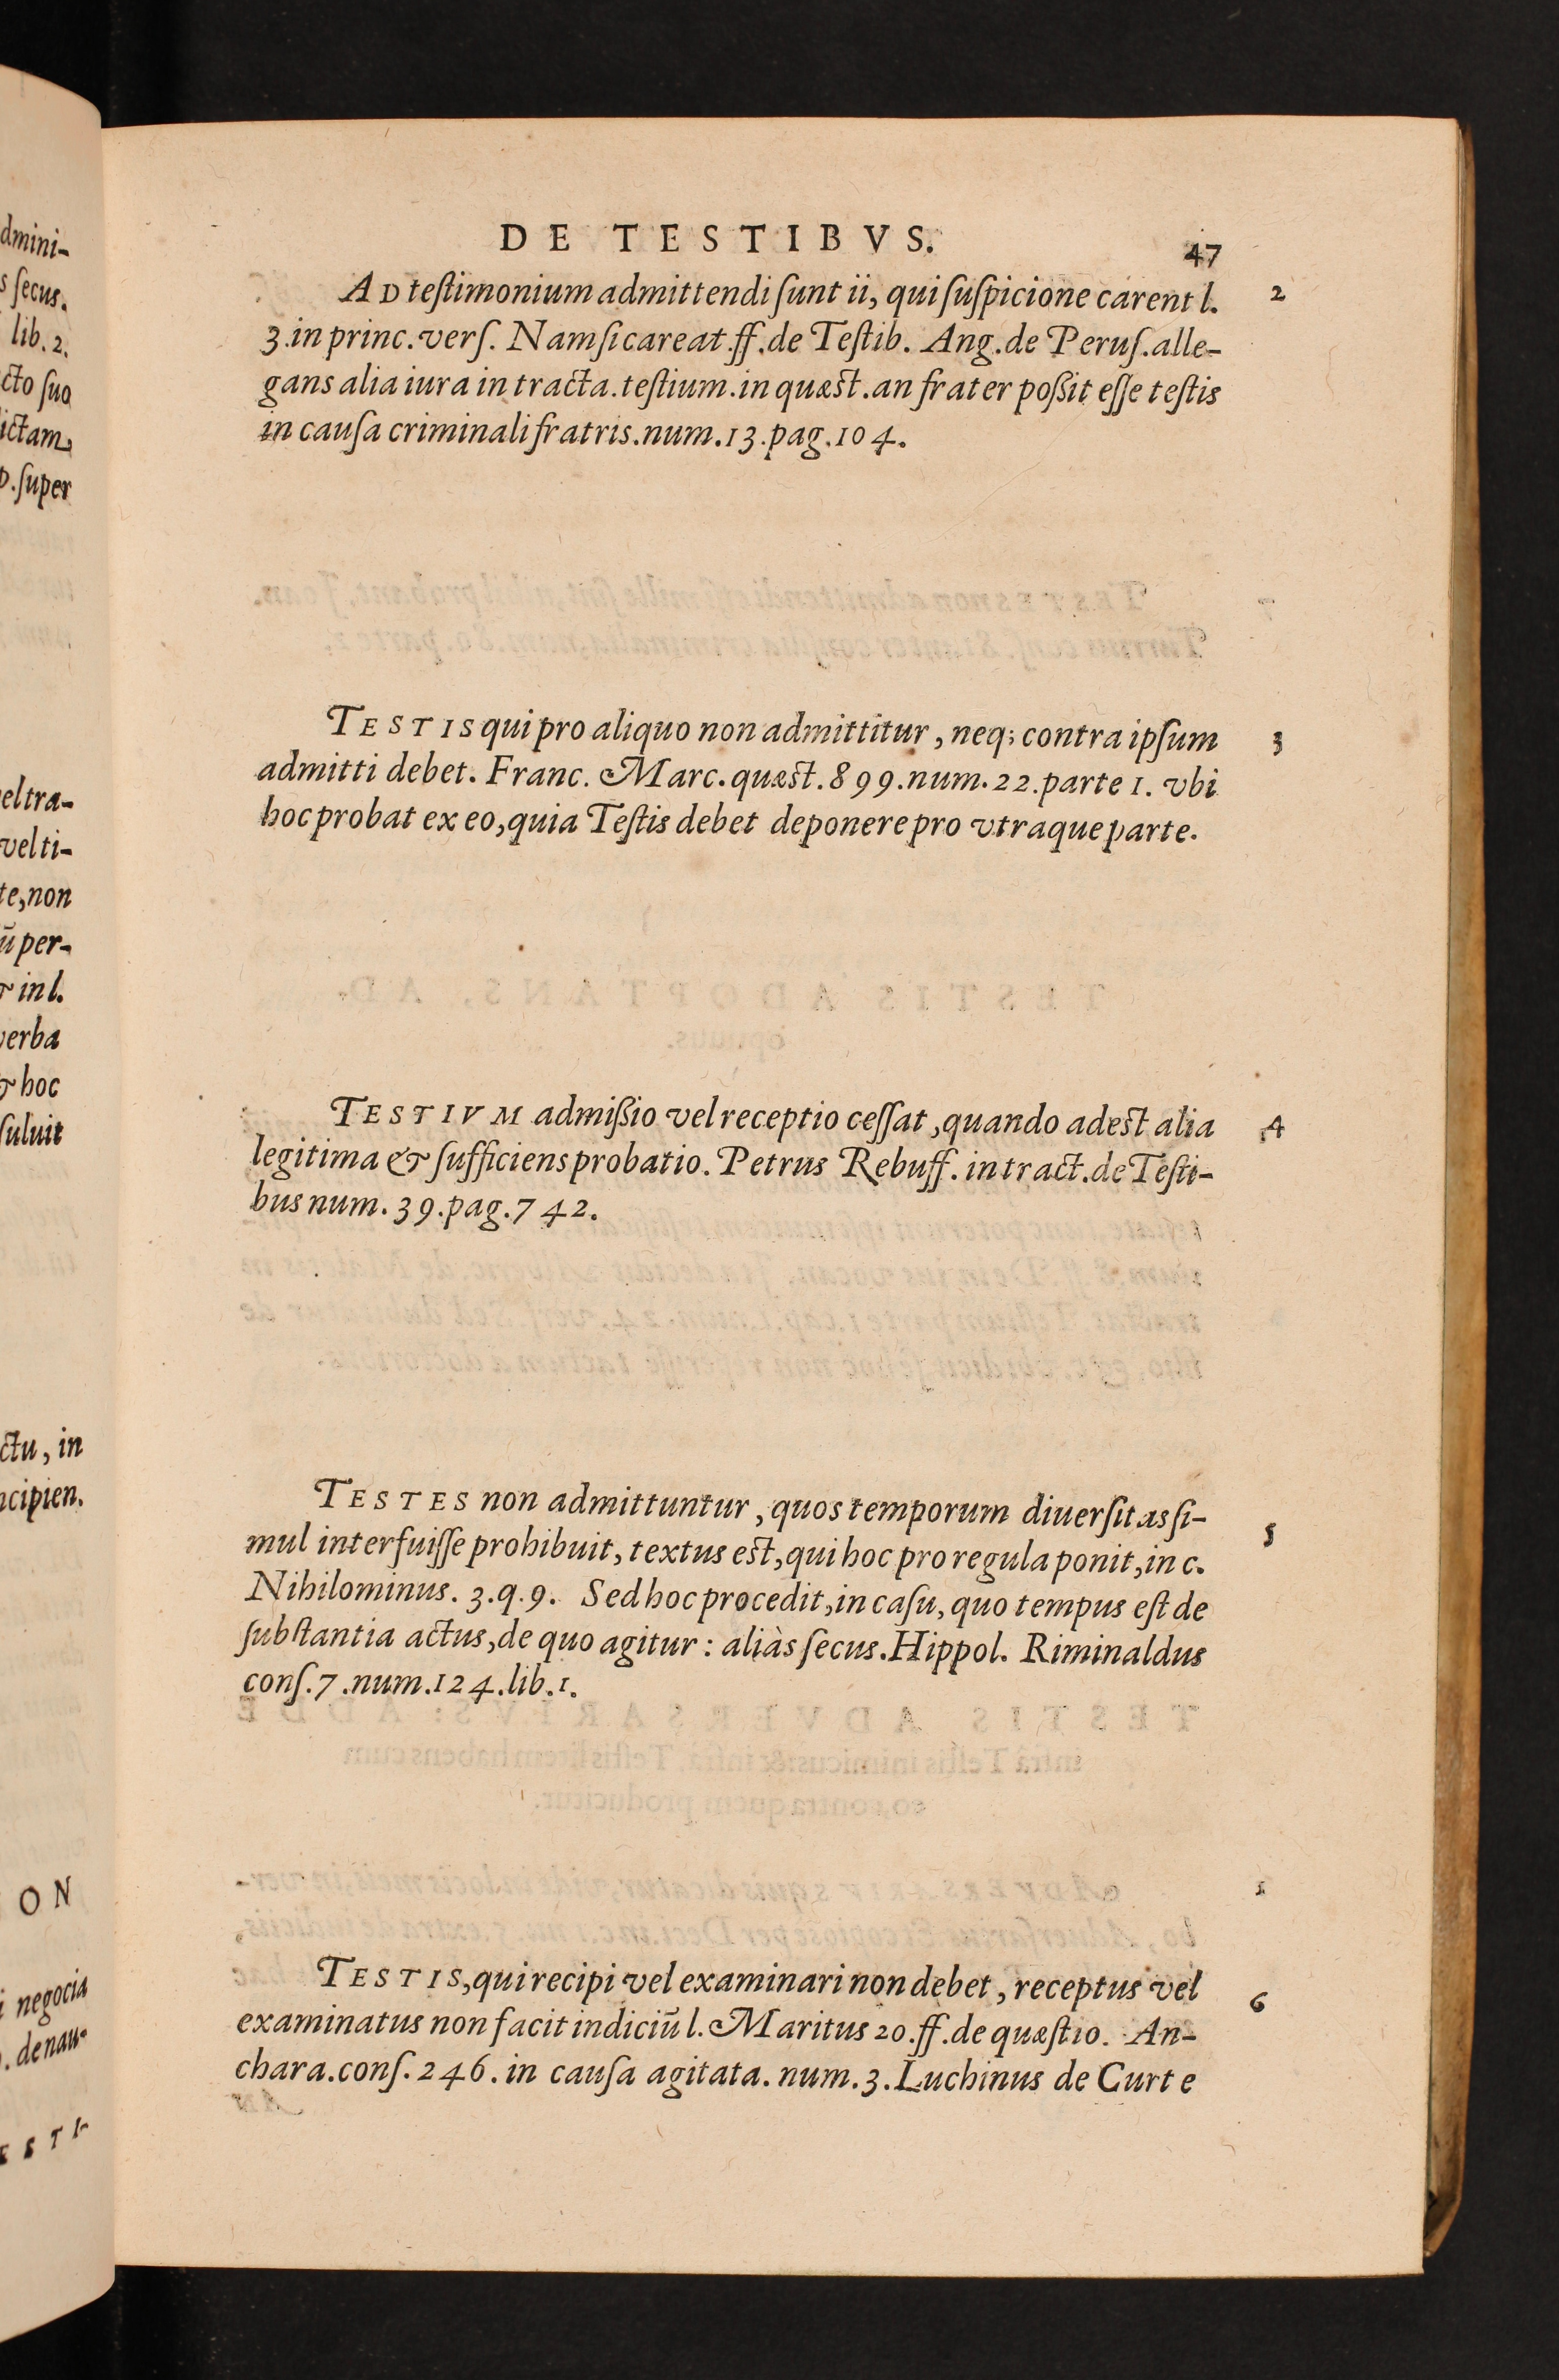 DE TESTIBVS.
47
AD teſtimonium admittendi ſunt ii, qui ſuſpicione carent l.
2
3.in princ.verſ. Nam ſi careat ff.de Teſtib. Ang.de Peruſ.alle-
gans alia iura in tracta.teſtium.in quæst.an frater poßit eſſe testis
in cauſa criminali fratris.num.13.pag.104.
TESTIS qui pro aliquo non admittitur, neq; contra ipſum
3
admitti debet. Franc. Marc.quæst.899.num.22.parte 1. vbi
hoc probat ex eo, quia Teſtis debet deponere pro vtraque parte.
TESTIVM admißio vel receptio ceſſat, quando adest alia
4
legitima & ſufficiens probatio. Petrus Rebuff. in tract.de Teſti-
bus num. 39.pag.742.
TESTES non admittuntur, quos temporum diuerſitas ſi-
5
mul interfuiſſe prohibuit, textus est, qui hoc pro regula ponit, in c.
Nihilominus. 3.q.9. Sed hoc procedit, in caſu, quo tempus eſt de
ſubſtantia actus, de quo agitur: aliàs ſecus. Hippol. Riminaldus
conſ.7.num.124.lib.1.
TESTIS, qui recipi vel examinari non debet, receptus vel
6
examinatus non facit indiciū l. Maritus 20.ff.de quæſtio. An-
chara.conſ.246.in cauſa agitata.num.3.Luchinus de Curte
dmini-
s ſecus.
lib. 2.
cto ſuo
ictam
ſuper
vel ti-
te, non
ū per-
in l.
verba
& hoc
ſuluit
ctu, in
ncipien.
ON
negocia
ESTI-